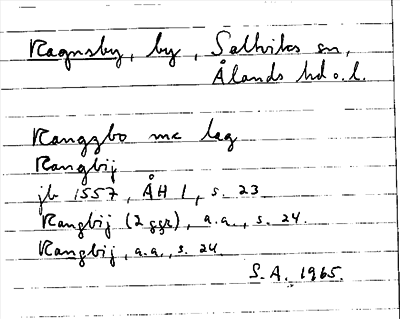 Ragnsby, by, Saltviks sn,
Ålands hd o. l.
Ranggbo mc leg
Rangbij
jb 1557, ÅH 1, s. 23
Rangbij (2 ggr), a.a., s. 24.
Rangbij, a.a., s. 24
S.A. 1965.